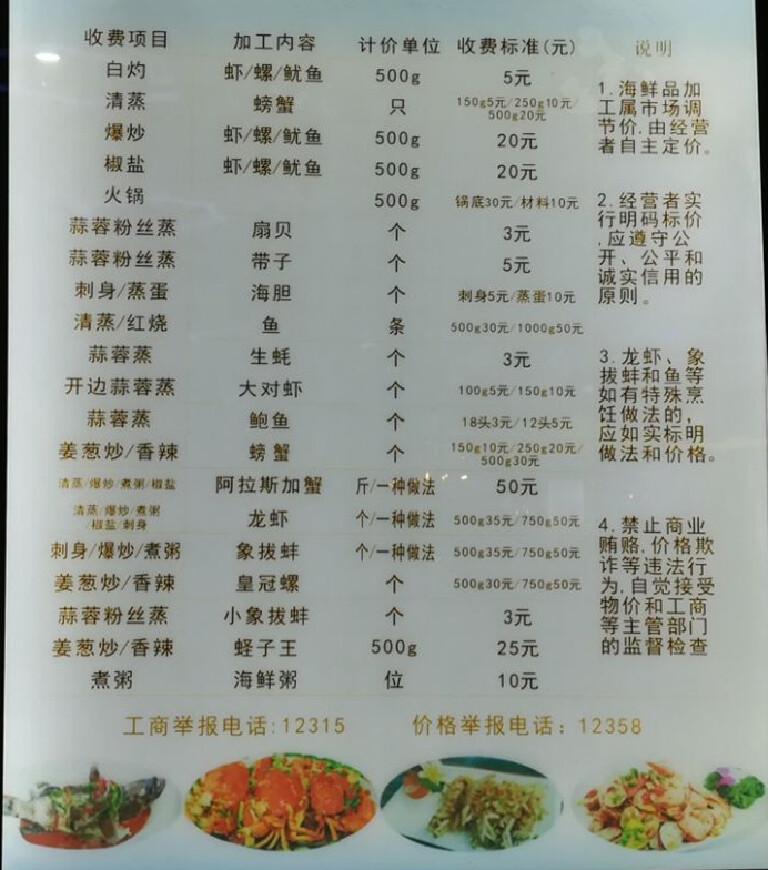 收费项目 加工内容 计价单位 收费标准(元) 说明
白灼 虾/螺/鱿鱼 500g 5元
清蒸 螃蟹 只 150g5元/250g10元/
500g20元
爆炒 虾/螺/鱿鱼 500g 20元
椒盐 虾/螺/鱿鱼 500g 20元
火锅 500g 锅底30元/材料10元
蒜蓉粉丝蒸 扇贝 个 3元
蒜蓉粉丝蒸 带子 个 5元
刺身/蒸蛋 海胆 个 刺身5元/蒸蛋10元
清蒸/红烧 鱼 条 500g30元/1000g50元
蒜蓉蒸 生蚝 个 3元
开边蒜蓉蒸 大对虾 个 100g5元/150g10元
蒜蓉蒸 鲍鱼 个 18头3元/12头5元
姜葱炒/香辣 螃蟹 个 150g10元/250g20元/
500g30元
清蒸/爆炒/煮粥/椒盐 阿拉斯加蟹 斤/一种做法 50元
清蒸/爆炒/煮粥
/椒盐/刺身 龙虾 个/一种做法 500g35元/750g50元
刺身/爆炒/煮粥 象拔蚌 个/一种做法 500g35元/750g50元
姜葱炒/香辣 皇冠螺 个 500g30元/750g50元
蒜蓉粉丝蒸 小象拔蚌 个 3元
姜葱炒/香辣 蛏子王 500g 25元
煮粥 海鲜粥 位 10元
1.海鲜品加
工属市场调
节价,由经营
者自主定价。
2.经营者实
行明码标价
,应遵守公
开、公平和
诚实信用的
原则。
3.龙虾、象
拔蚌和鱼等
如有特殊烹
饪做法的,
应如实标明
做法和价格。
4.禁止商业
贿赂,价格欺
诈等违法行
为,自觉接受
物价和工商
等主管部门
的监督检查
工商举报电话:12315 价格举报电话：12358